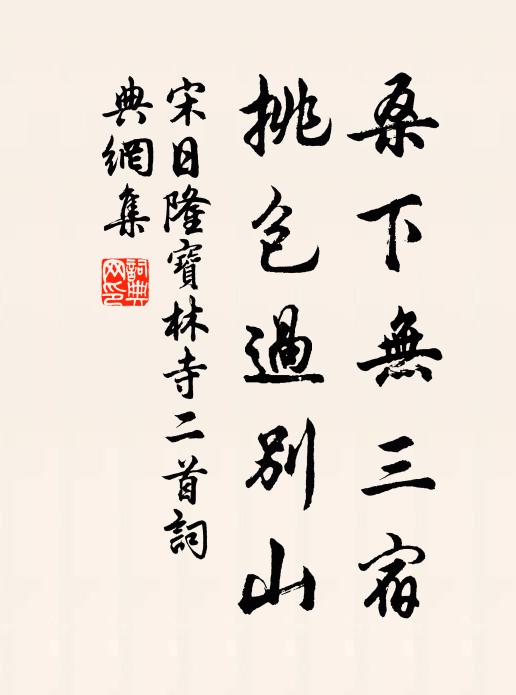 桑下無三宿
挑包過別山
宋日隆寶林寺二首詞
典網集
詞典
网印